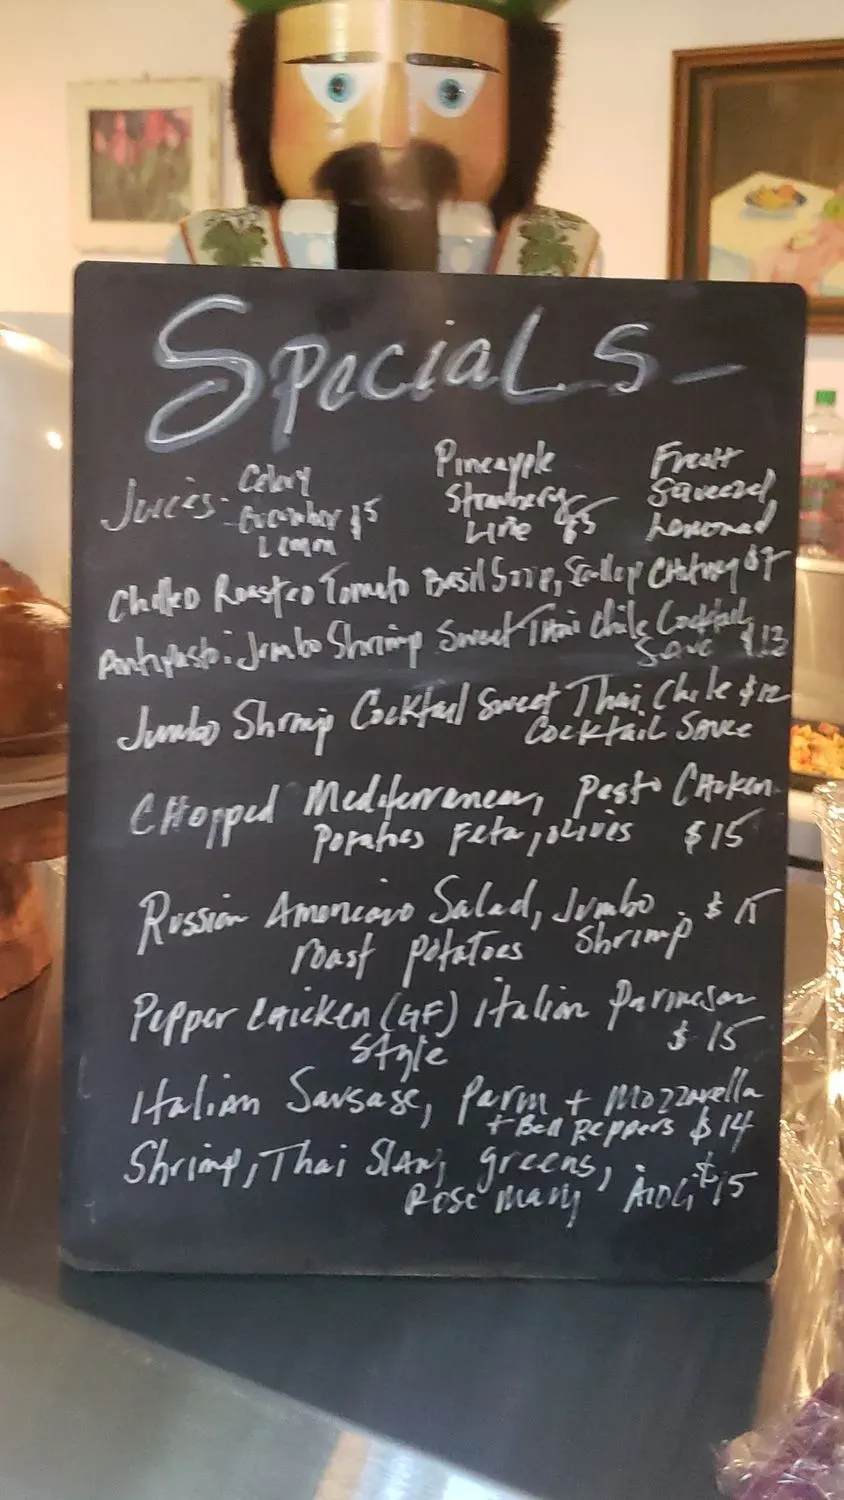 Specials
Juices: Celery Pineapple Fresh
Cucumber $5 Strawberry Squeezed
Lemon Lime $5 Lemonad
Chilled Roasted Tomato Basil Soup, $7
Antipasto: Jumbo Shrimp Sweet Thai Chile Cocktail
Sauc $13
Jumbo Shrimp Cocktail Sweet Thai Chile $12
Cocktail Sauce
Chopped Mediterranean, Pesto Chicken
Potatoes Feta, olives $15
Russian Americano Salad, Jumbo $15
roast potatoes Shrimp
Pepper Chicken (GF) Italian Parmesan
Style $15
Italian Sausage, Parm + Mozzarella
+ Bell Peppers $14
Shrimp, Thai Slaw, greens,
Rose mary Aioli $15